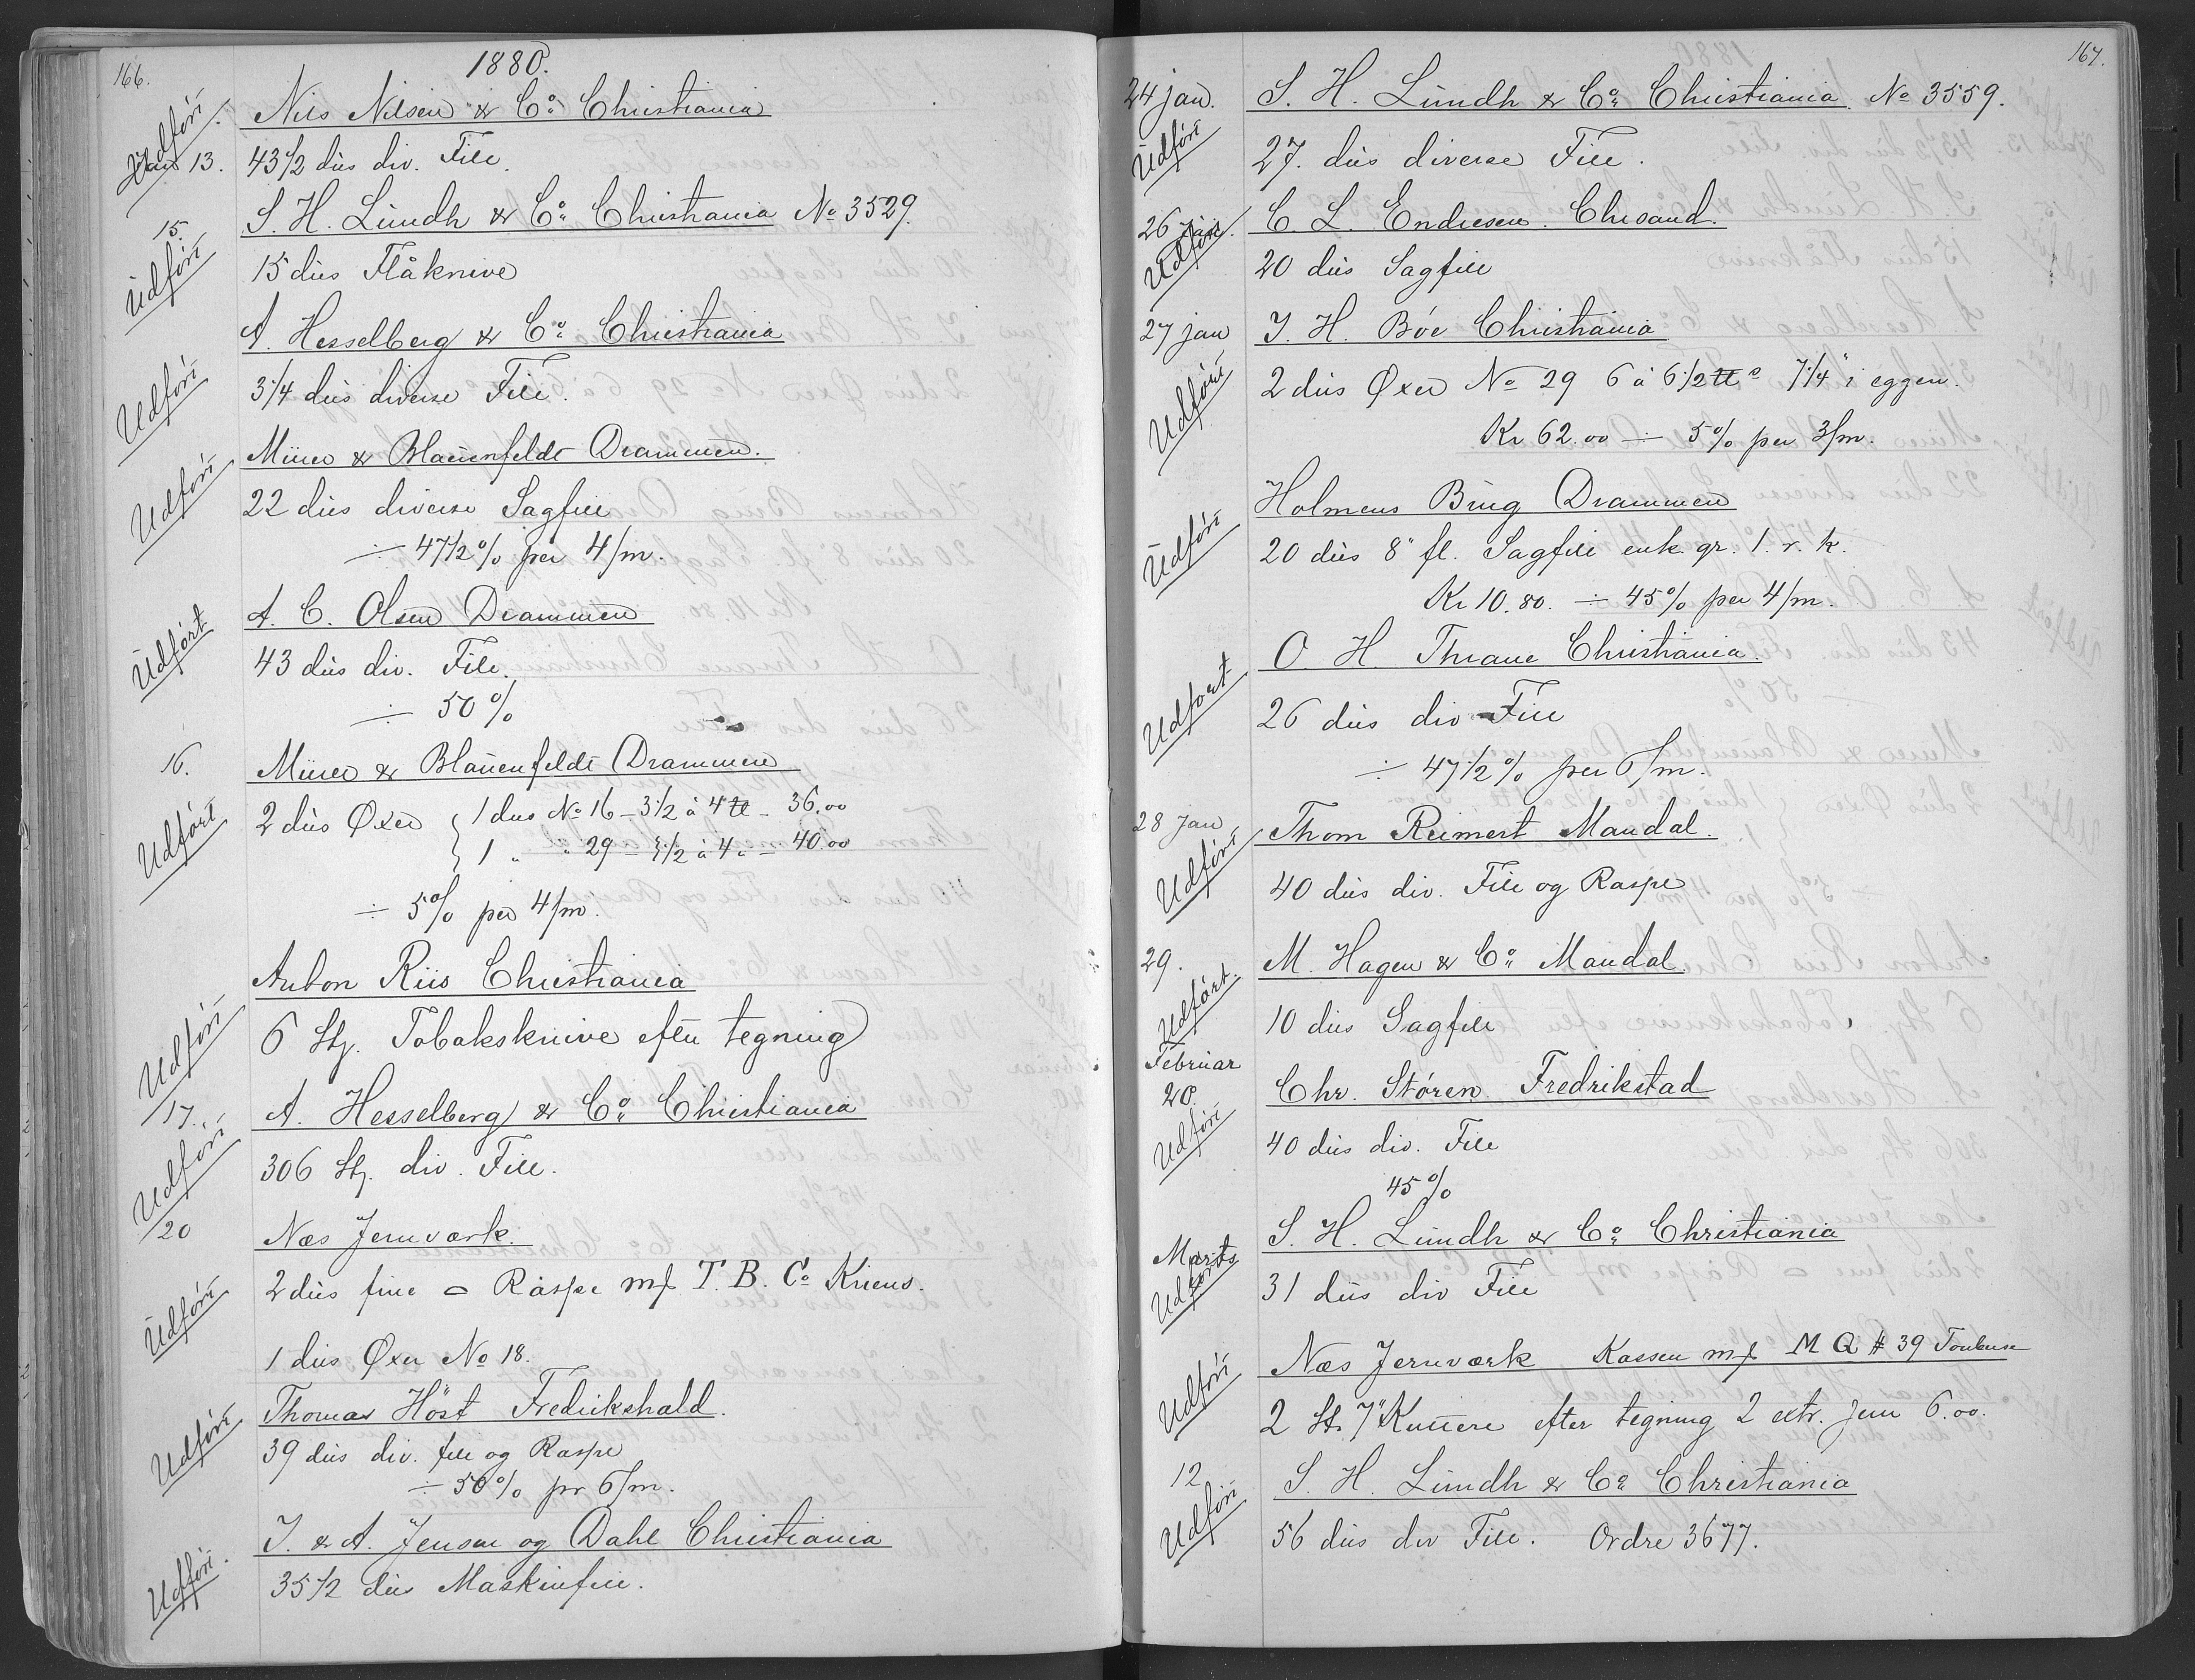 166.
1880.
Nils Nilsen & Co Christiania
Udført
Jan 13. 43 1/2 dus div. File.
S. H. Lundh & Co Christiania No 3529.
15.
Udført
15 dus Flåknive
A. Hesselberg & Co Christiania
Udført
3/4 dus diverse File.
Udført
& Blauenfeldt Drammen.
22 dus diverse Sagfile
÷ 47 1/2 % per 4/m.
A. C. Olsen Drammen
Udført
43 dus div. File.
÷ 50 %
16.
& Blauenfeldt Drammen
Udført
2 dus Øxer { 1 dus No 16 – 3 1/2 à 4 ℔ – 36.00
1 " " 29 – 3 1/2 à 4 " – 40.00
÷ 5 % per 4/m.
Anton Riis Christiania
Udført
6 Stz. Tobaksknive efter tegning
17.
A. Hesselberg & Co Christiania
Udført
306 Stz. div. File.
20
Næs Jernværk.
Udført
2 dus fine Raspe mf T. B. Co
1 dus Øxer No 18.
Thomas Höst Fredrikshald.
Udført
39 dus div. file og Raspe
÷ 50 % pr 6/m.
J. & A. Jensen og Dahl Christiania
Udført.
35 1/2 dus Maskinfile.
167.
24 jan. S. H. Lundh & Co Christiania. No 3559.
Udført
27. dus diverse File.
26 jan. C. L. Endresen. Chrsand.
Udført
20 dus Sagfile
27 jan J. H. Bøe Christiania
Udført
2 dus Øxer No 29 6 à 6 1/2 ℔ 7 1/4" i eggen.
Kr 62.00 ÷ 5 % per 3/m.
Holmens Brug Drammen
Udført
20 dus 8" fl. Sagfile enk. gr. 1. r. k.
Kr 10.80. ÷ 45 % per 4/m.
O. H. Thrane Christiania.
Udført
26 dus div File
÷ 47 1/2 % per 6/m.
28 Jan
Thom Reimert Mandal.
Udført
40 dus div. File og Raspe
29.
M. Hagen & Co Mandal.
Udført.
10 dus Sagfile
Februar
20.
Chr. Støren. Fredrikstad
Udført
40 dus div. File
45 %
S. H. Lundh & Co Christiania
Marts
Udført
31 dus div File
Næs Jernværk Kassen mf M Q # 39
Udført
2 St. 7" efter tegning 2 extr. Jern 6.00.
12
S. H. Lundh & Co Christiania
Udført
56 dus div File. Ordre 3677.